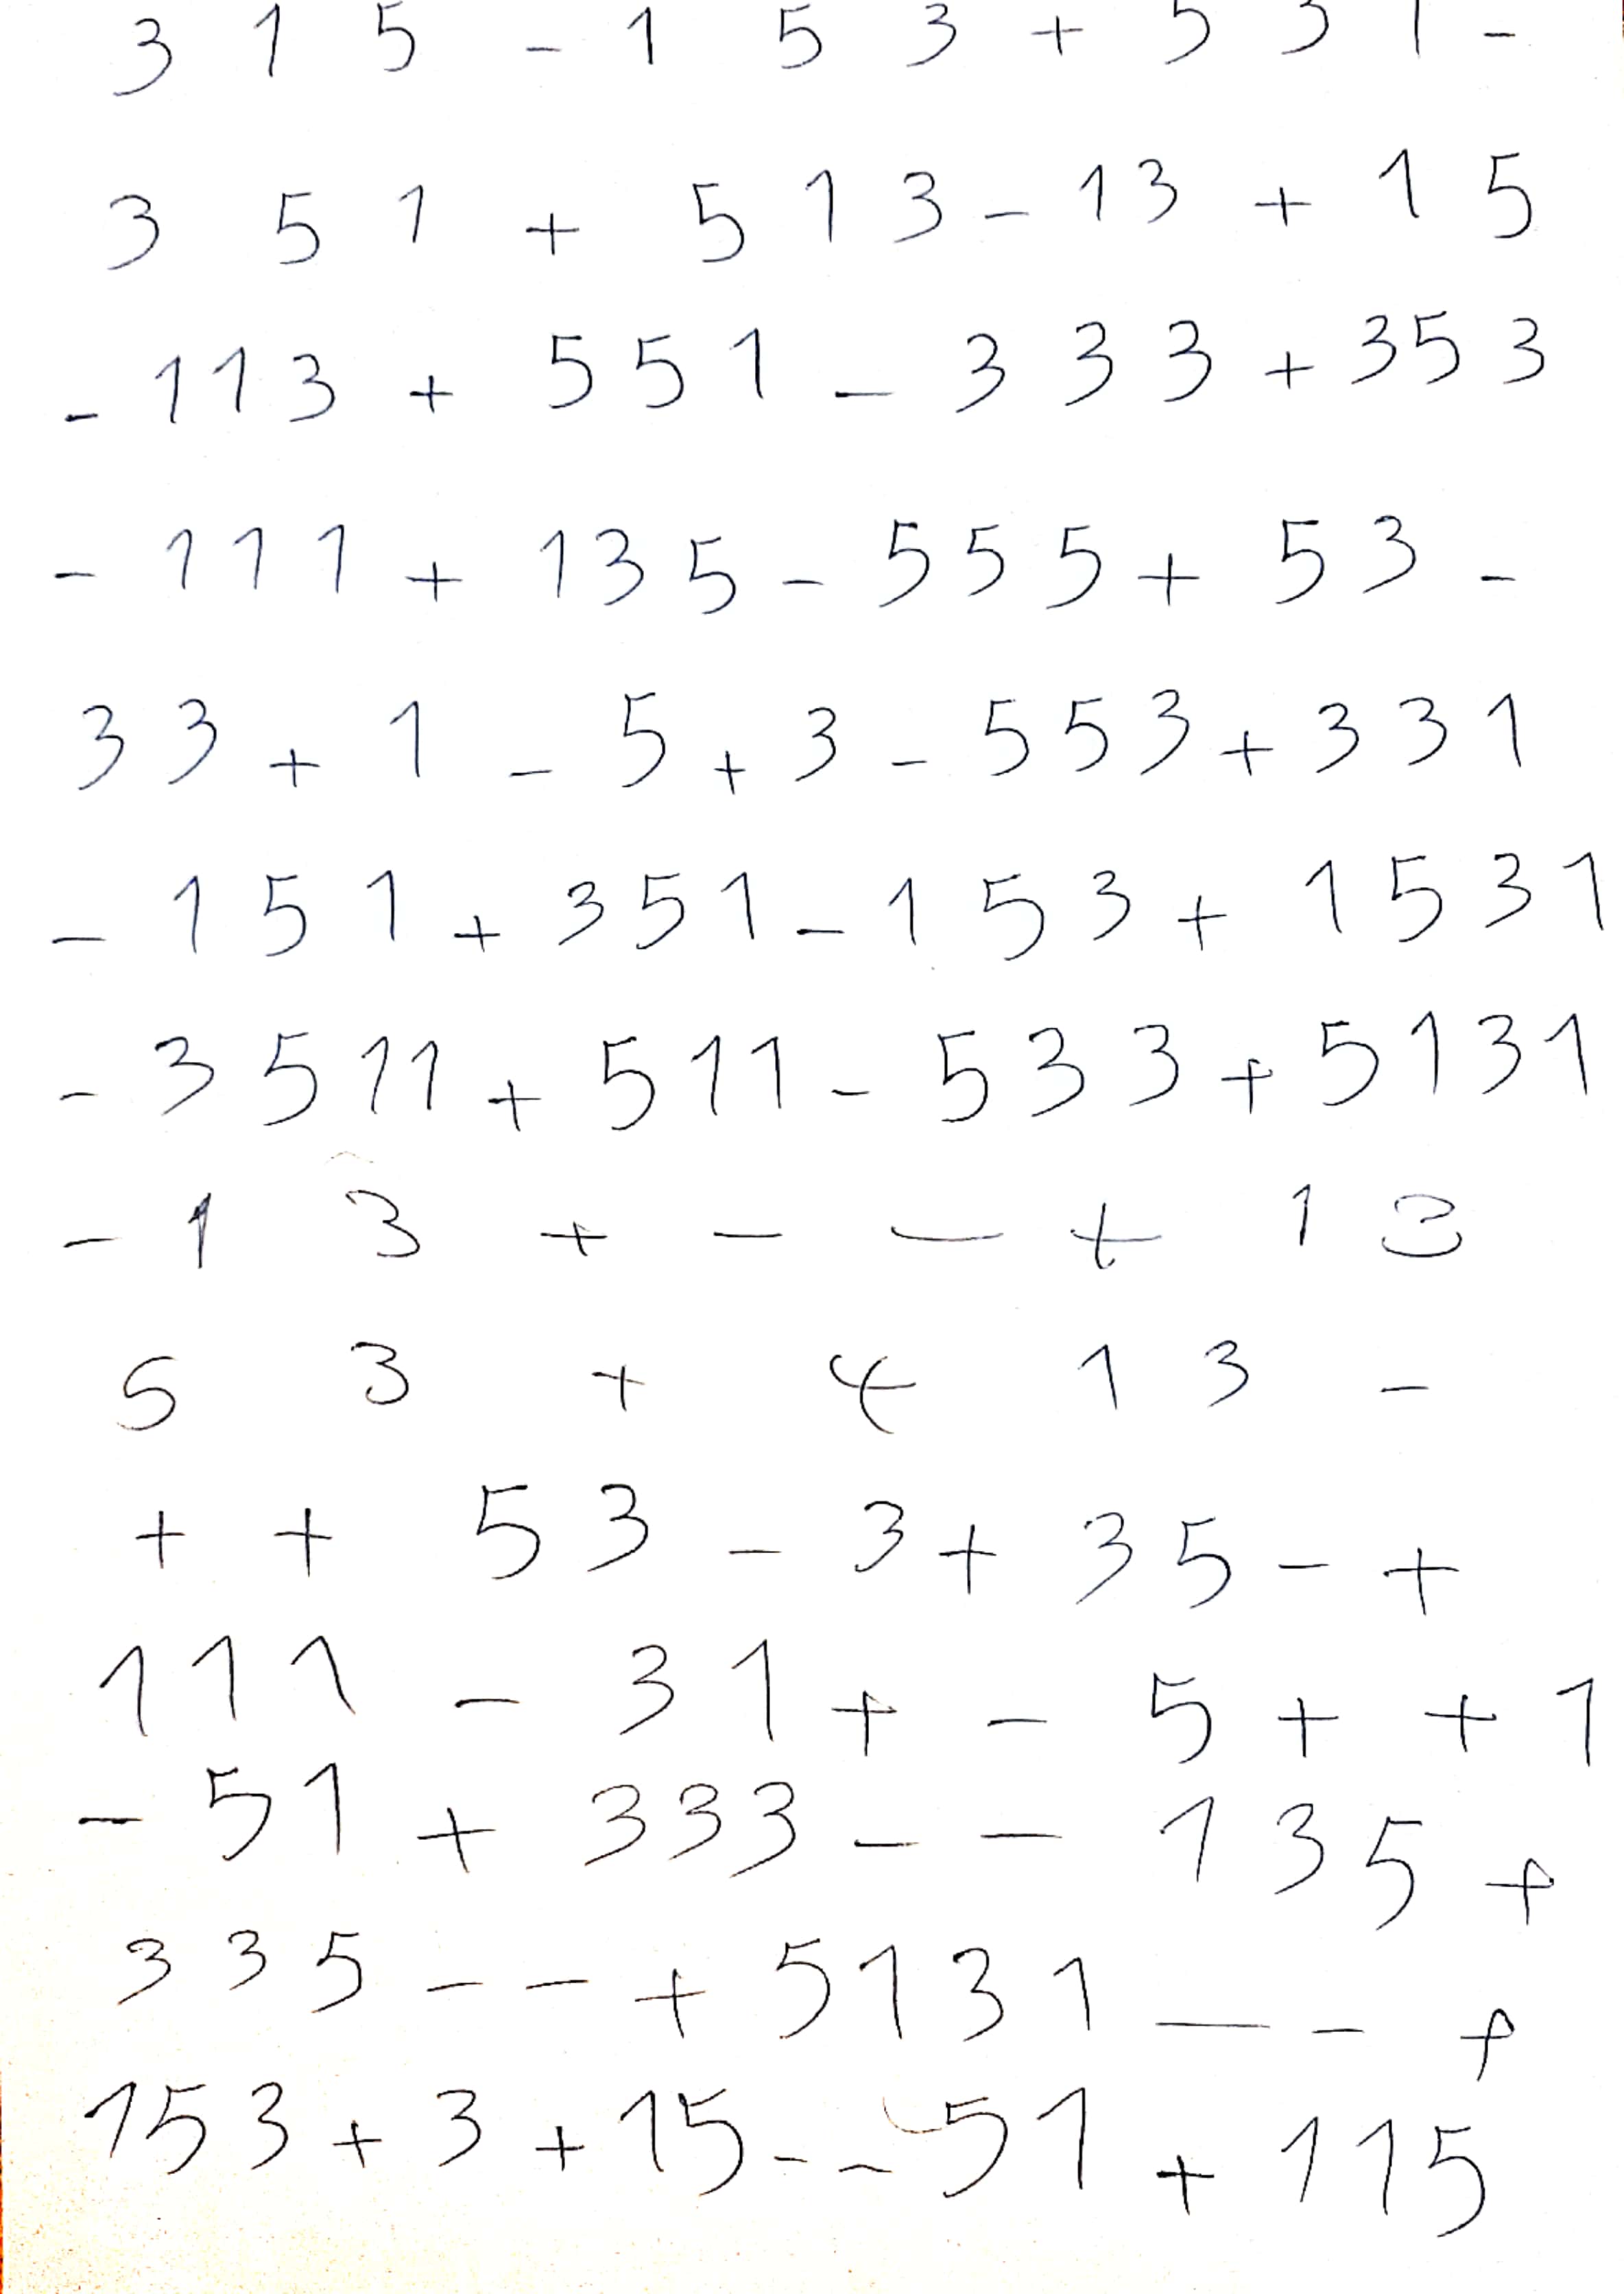 3 1 5 - 1 5 3 + 5 3 1 -
3 5 1 + 5 1 3 - 1 3 + 1 5
- 1 1 3 + 5 5 1 - 3 3 3 + 3 5 3
- 1 1 1 + 1 3 5 - 5 5 5 + 5 3 -
3 3 + 1 - 5 + 3 - 5 5 3 + 3 3 1
- 1 5 1 + 3 5 1 - 1 5 3 + 1 5 3 1
- 3 5 1 1 + 5 1 1 - 5 3 3 + 5 1 3 1
- 1 3 + - - + 1 3
5 3 + + 1 3 -
+ + 5 3 - 3 + 3 5 - +
1 1 1 - 3 1 + - 5 + + 1
- 5 1 + 3 3 3 - - 1 3 5 +
3 3 5 - - + 5 1 3 1 - - +
1 5 3 + 3 + 1 5 - - 5 1 + 1 1 5